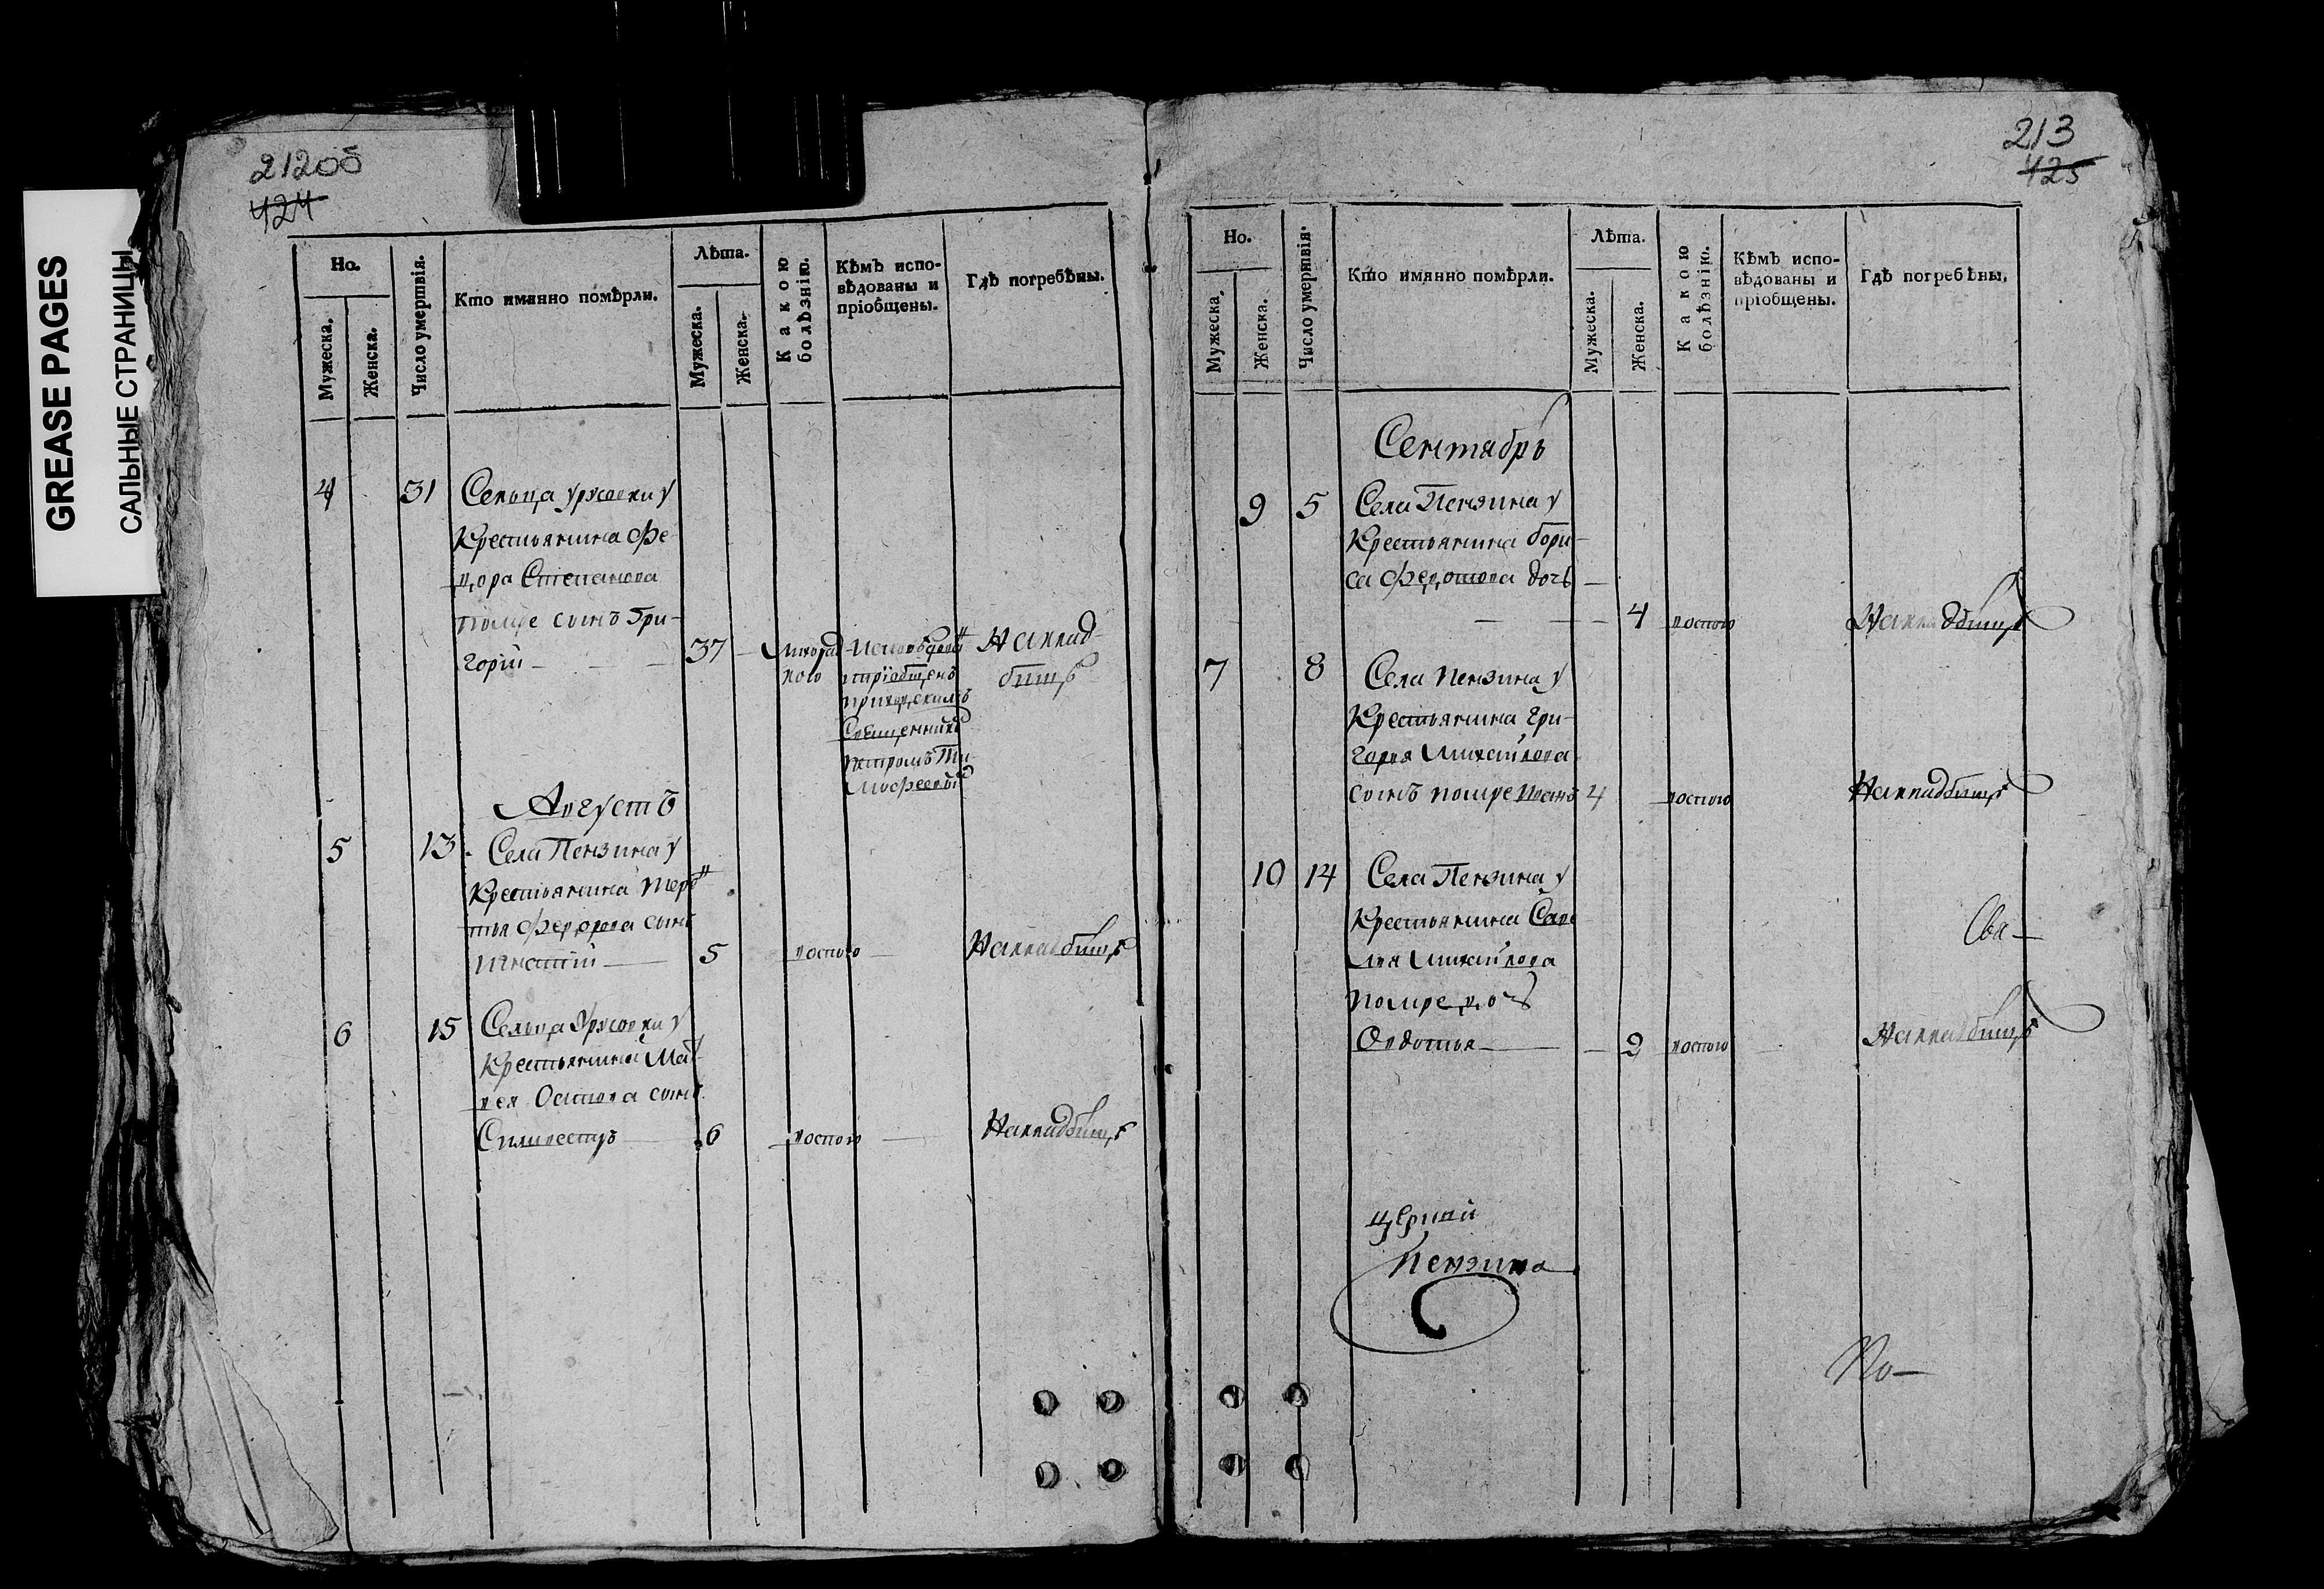 GREASE PAGES
САЛЬНЫЕ СТРАНИЦЫ
212об
424
Но.
Мужеска.
Женска.
Число умертвія.
Кто имянно помѣрли.
Лѣта.
Мужеска.
Женска.
Какою
болѣзнію.
Кѣмъ испо-
вѣдованы и
пріобщены.
Гдѣ погребѣны.
4 31 Сельца Урусовки у
Крестьянина Фе-
дора Степанова
помре сынъ Гри-
горій 37
пріобщенъ
приходскимъ
Священникомъ
Петромъ Ти
мофеевым
На клад-
бищѣ
Августъ
5 13 Села Пензина у
Крестьянина Тере
тья Федорова сынъ
Игнатій 5 воспою На кладбищѣ
6 15 Сельца Урусовки у
Крестьянина Мат
вея Осипова сынъ
Силивестръ 6 воспою На кладбищѣ
213
425
Но.
Мужеска.
Женска.
Число умертвія.
Кто имянно помѣрли.
Лѣта.
Мужеска.
Женска.
Какою
болѣзнію.
Кѣмъ испо-
вѣдованы и
пріобщены.
Гдѣ погребѣны.
Сентябрь
9 5 Села Пензина у
Крестьянина Бори-
са Федотова дочь
4 воспою На кладбищѣ
7 8 Села Пензина у
Крестьянина Гри-
горья Михайлова
сынъ помре Иванъ 4 воспою На кладбищѣ
10 14 Села Пензина у
Крестьянина Саве
лия Михайлова
помре дочь
Овдотья 2 воспою На кладбищѣ
Сва-
церкви
Пензина
С
По-